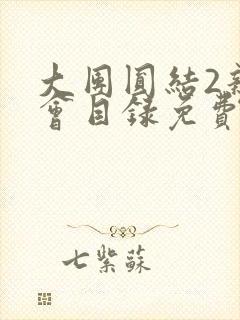 大団圓結2新
會目錄免費
七紫蘇